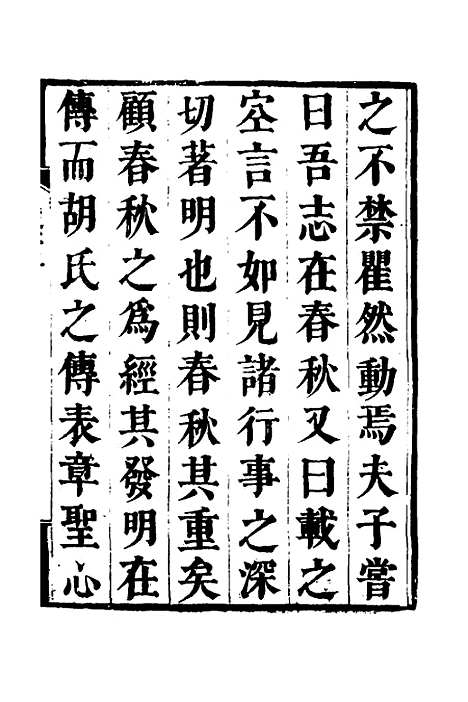 之不禁瞿然動焉夫子嘗
曰吾志在春秋又曰載之
空言不如見諸行事之深
切著明也則春秋其重矣
顧春秋之為經其發明在
傳而胡氏之傳表章聖心